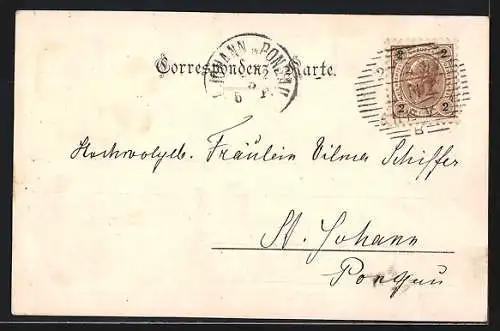 Correspondenz-Karte.
ST. JOHANN IM PONGAU
2 2
2 2
Hochwolgeb. Fräulein Vilma Schiffer
St. Johann
Pongau